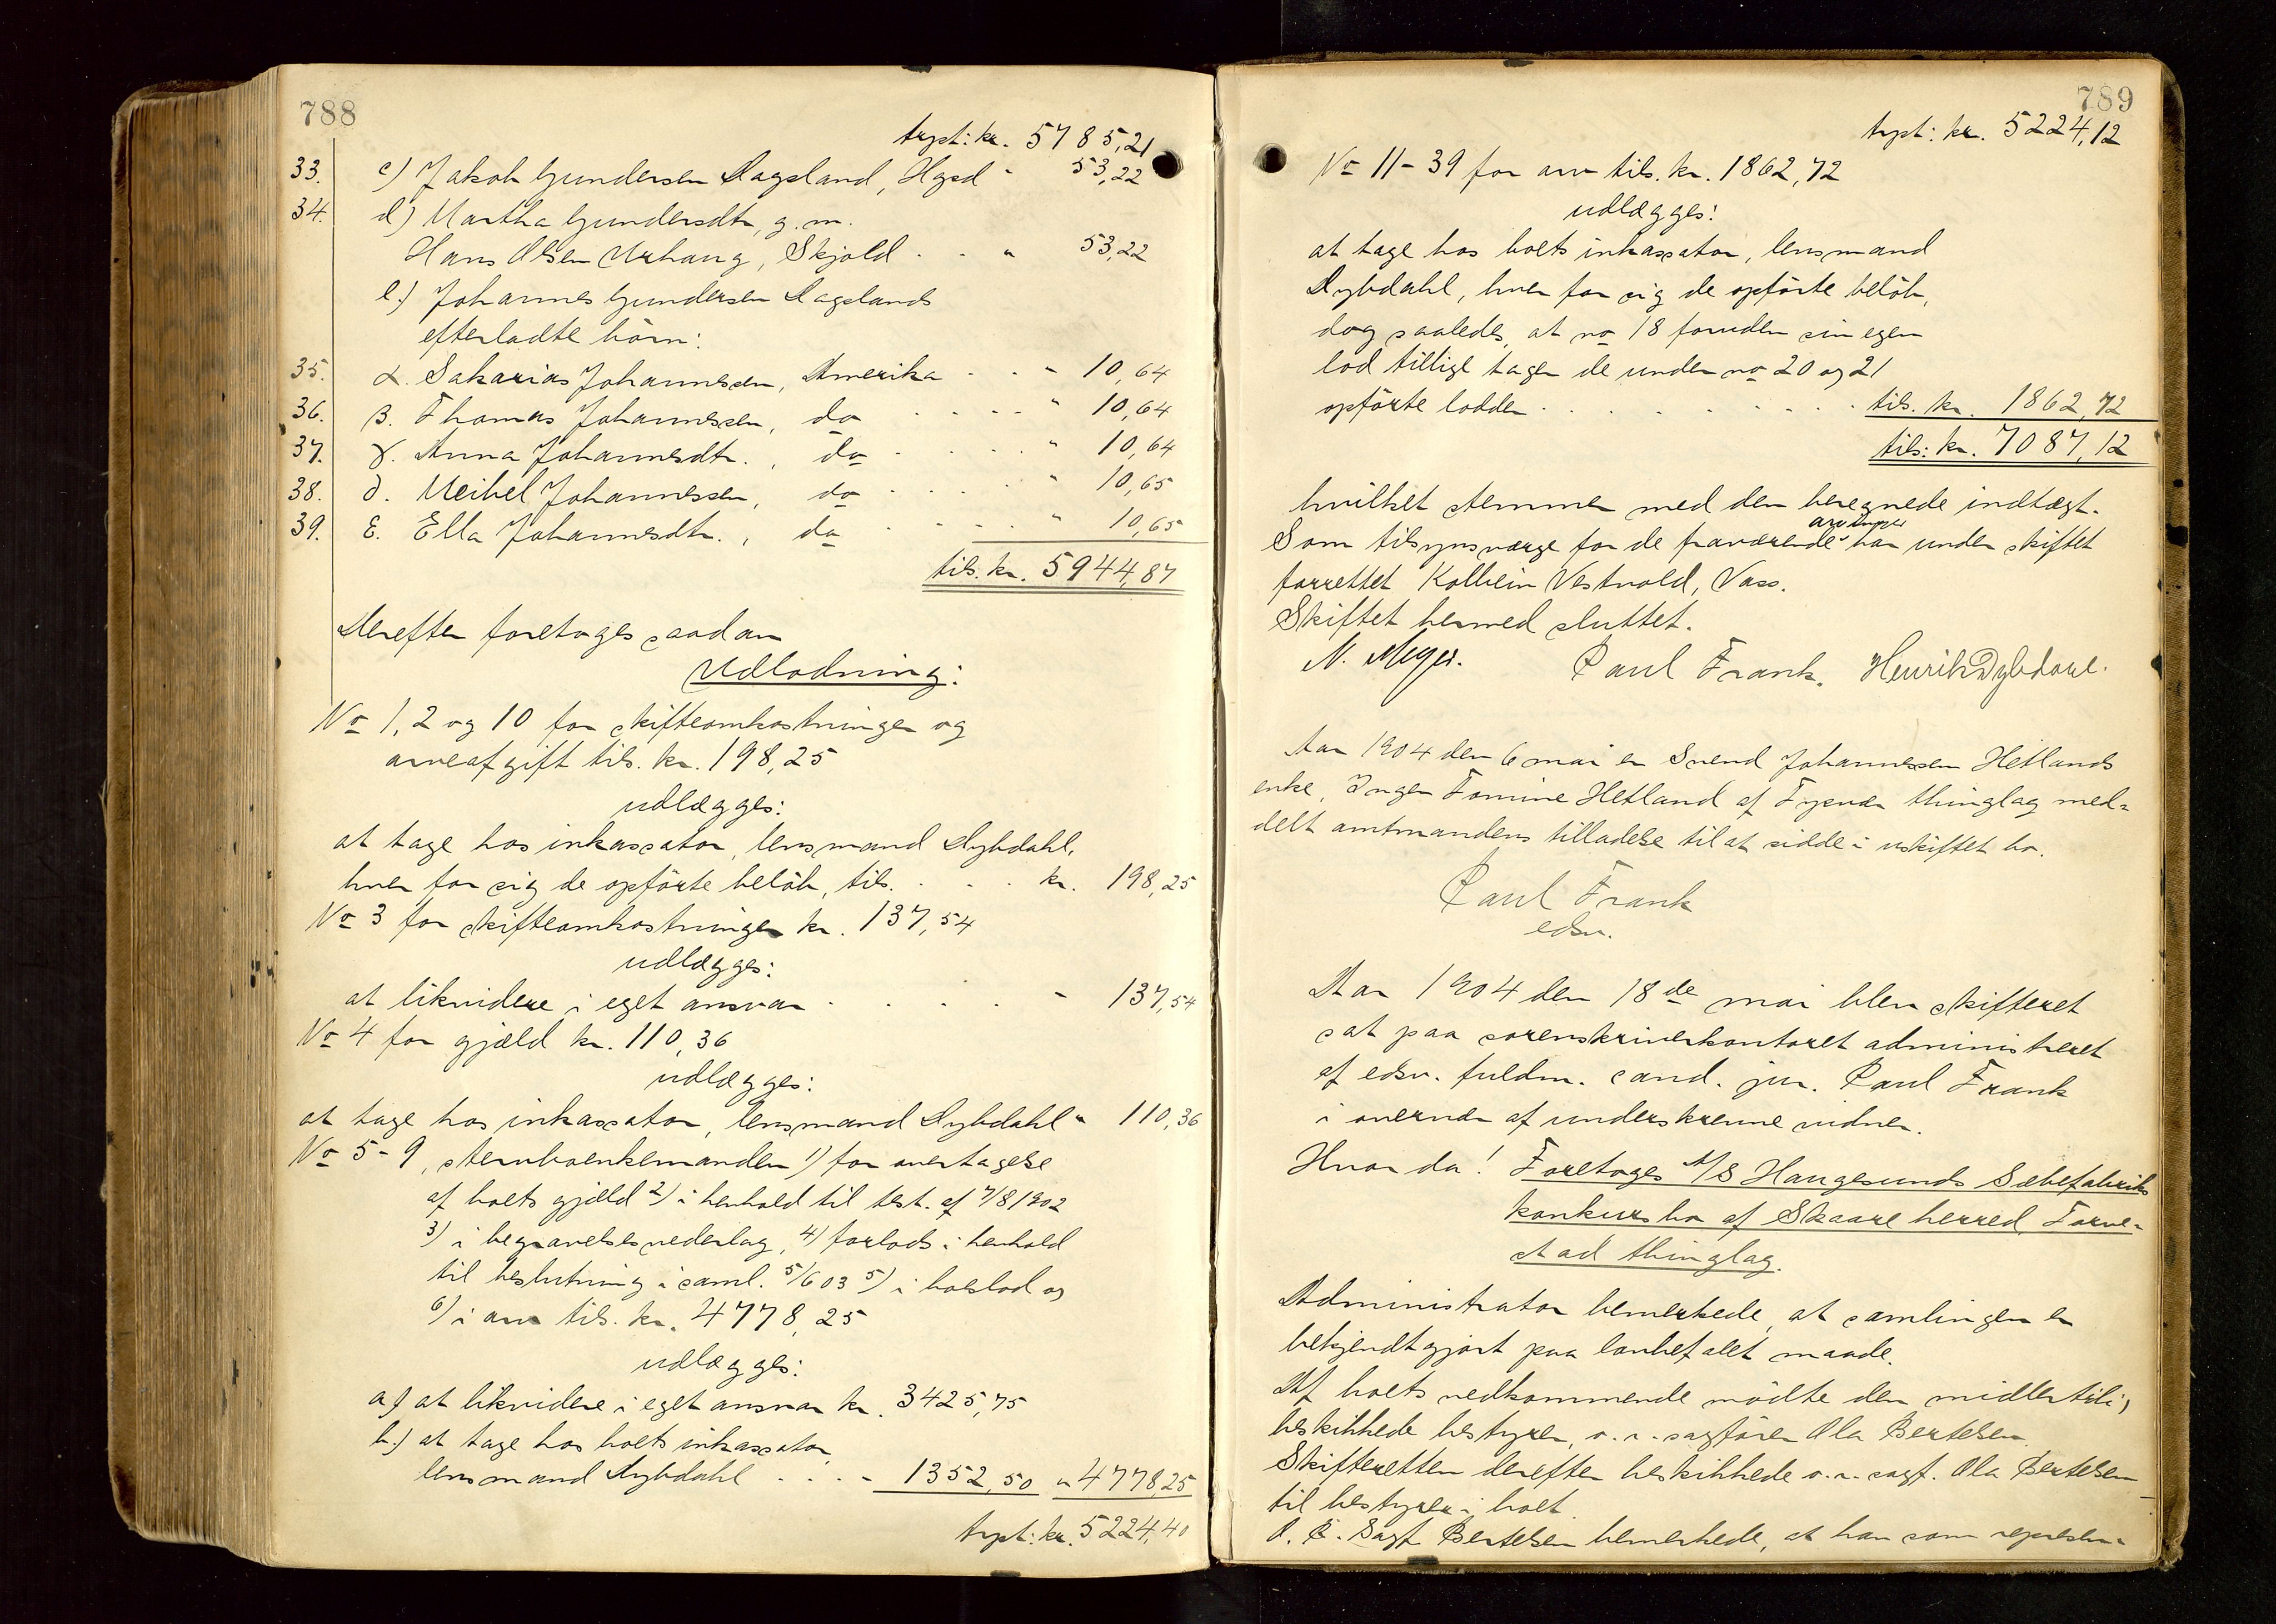 788
trpt: kr. 5785,21
33. c) Jakob Gundersen Dagsland, Hgsd " 53,22
34. d) Martha Gundersdtr, g. m.
Hans Olsen Urhaug, Skjold . . " 53,22
e.) Johannes Gundersen Dagslands
efterladte børn:
35. α. Sakarias Johannessen, Amerika . . " 10,64
36. β. Thomas Johannessen, do . . . . " 10,64
37. γ. Anna Johannesdtr. , do . . . . " 10,64
38. δ. Meibel Johannessen, do . . . . " 10,65
39. ε. Ella Johannesdtr. , do . . . . " 10,65
tils. kr. 5944,87
Derefter foretoges saadan
Udlodning:
No 1, 2 og 10 for skifteomkostninger og
arveafgift tils. kr. 198,25
udlægges:
at tage hos inkassator, lensmand Dybdahl,
hver for sig de opførte beløb, tils. . . . kr. 198,25
No 3 for skifteomkostninger kr. 137,54
udlægges:
at likvidere i eget ansvar . . . . - 137,54
No 4 for gjæld kr. 110,36
udlægges:
at tage hos inkassator, lensmand Dybdahl " 110,36
No 5-9, stervboenkemanden 1) for overtagelse
af boets gjæld 2) i henhold til test. af 7/8 1902
3) i begravelsesvederlag, 4) forlods i henhold
til beslutning i saml. 5/6 03 5) i boeslod og
6) i arv tils. kr. 4778,25
udlægges:
a) at likvidere i eget ansvar kr. 3425,75
b.) at tage hos boets inkassator,
lensmand Dybdahl . . . - 1352,50 " 4778,25
trpt: kr. 5224,40
789
trpt: kr. 5224,12
No 11-39 for arv tils. kr. 1862,72
udlægges:
at tage hos boets inkassator, lensmand
Dybdahl, hver for sig de opførte beløb,
dog saaledes, at no 18 foruden sin egen
lod tillige tager de under no 20 og 21
opførte lodder . . . . . . . . tils. kr. 1862,72
tils: kr. 7087,12
hvilket stemmer med den beregnede indtægt.
Som tilsynsværge for de fraværende arvinger har under skiftet
forrettet Kolbein Vestvold, Vass.
Skiftet hermed sluttet.
N. Meyer. Paul Frank. Henrik Dybdahl.
Aar 1904 den 6 mai er Svend Johannessen Hetlands
enke, Inger Tomine Hetland af Tysvær thinglag med=
delt amtmandens tilladelse til at sidde i uskiftet bo.
Paul Frank
edsv.
Aar 1904 den 18de mai blev skifteret
sat paa sorenskriverkontoret administreret
af edsv. fuldm. cand. jur. Paul Frank
i overvær af underskrevne vidner.
Hvor da! Foretoges A/S Haugesunds Sæbefabriks
konkursbo af Skaare herred, Torve=
stad thinglag.
Administrator bemerkede, at samlingen er
bekjendtgjort paa lovbefalet maade.
Af boets vedkommende mødte den midlertidig
beskikkede bestyrer, o.r. sagfører Ola Bertelsen.
Skifteretten derefter beskikkede o.r. sagf. Ola Bertelsen
til bestyrer i boet.
O. R. Sagf Bertelsen bemerkede, at han som repræsen=